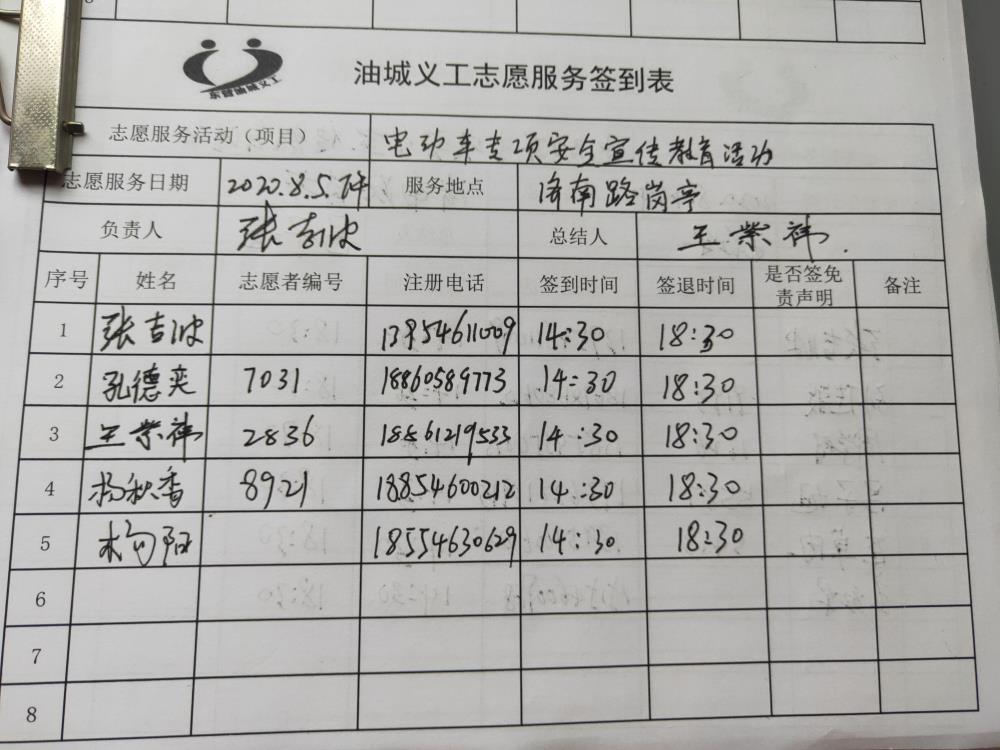 东营油城义工
油城义工志愿服务签到表
志愿服务活动（项目） 电动车专项安全宣传教育活动
志愿服务日期 2020.8.5.下午 服务地点 济南路岗亭
负责人 张吉波 总结人 王荣祥.
序号 姓名 志愿者编号 注册电话 签到时间 签退时间 是否签免责声明 备注
1 张吉波 13954611009 14:30 18:30
2 孔德奕 7031 18860589773 14:30 18:30
3 王荣祥 2836 18561219533 14:30 18:30
4 杨秋香 8921 18854600212 14:30 18:30
5 18554630629 14:30 18:30
6
7
8